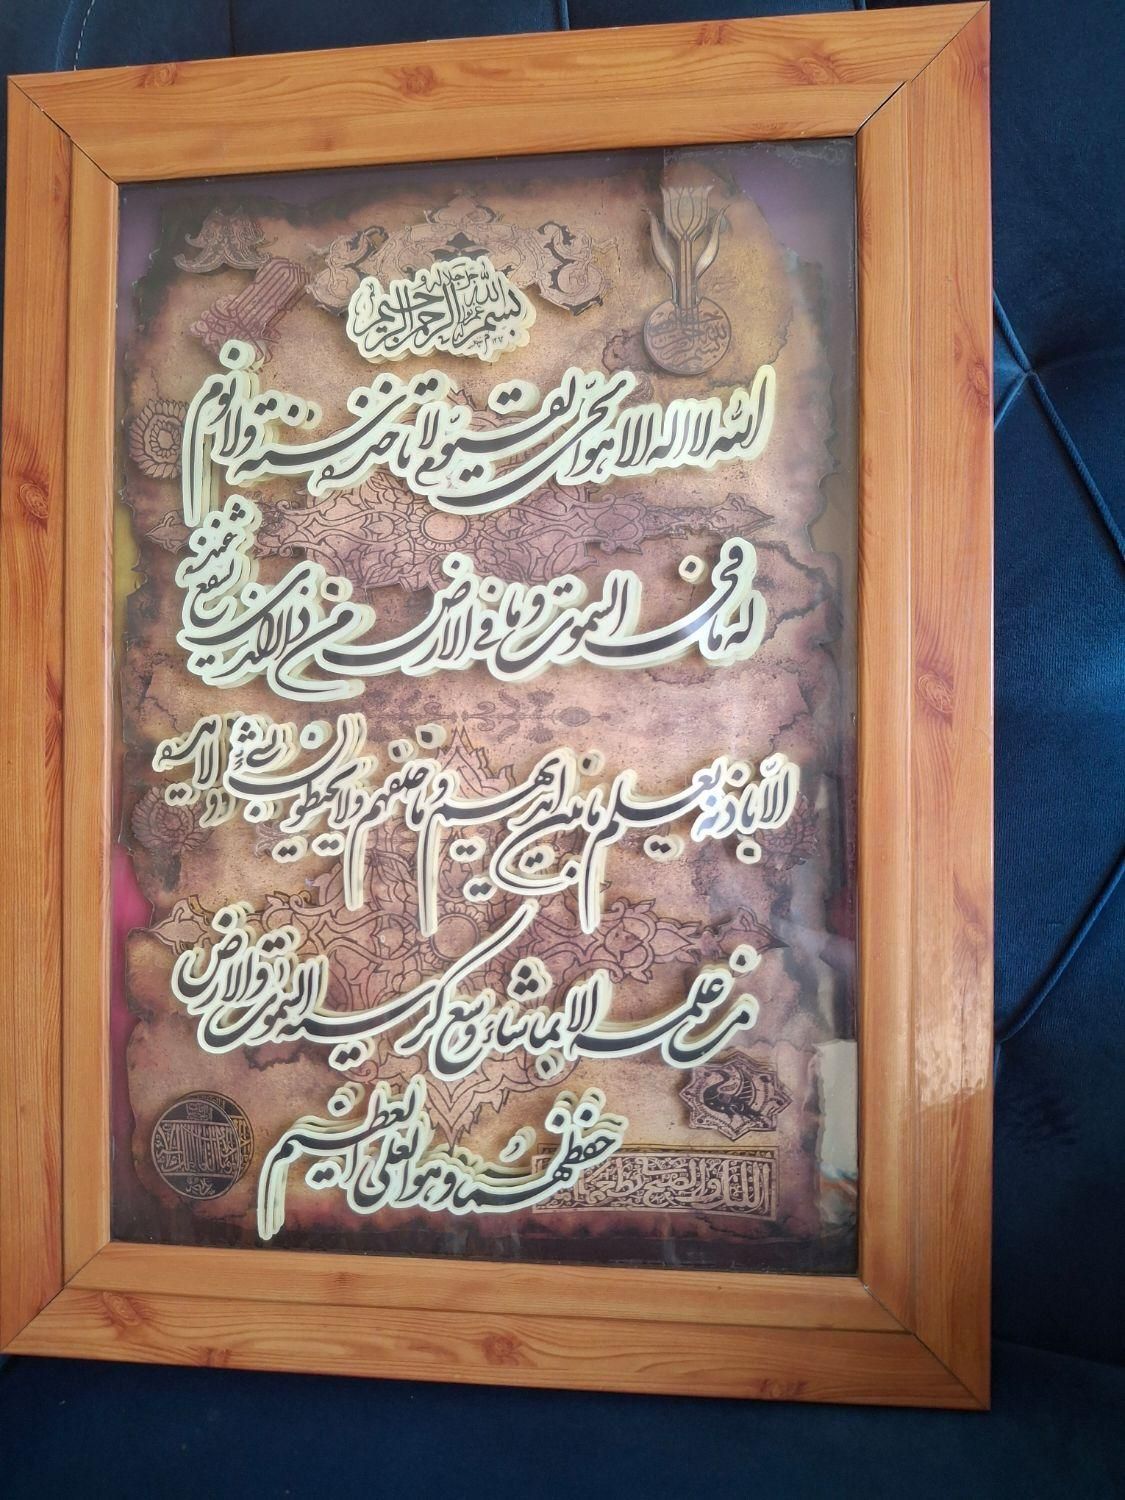 بسم الله الرحمن الرحیم
الله لا اله الا هو الحی القیوم لا تاخذه سنة ولا نوم
له ما فی السموت وما فی الارض من ذا الذی یشفع عنده
الا باذنه یعلم ما بین ایدیهم وما خلفهم ولا یحیطون بشیء
من علمه الا بما شاء وسع کرسیه السموت والارض
ولا یوده حفظهما وهو العلی العظیم